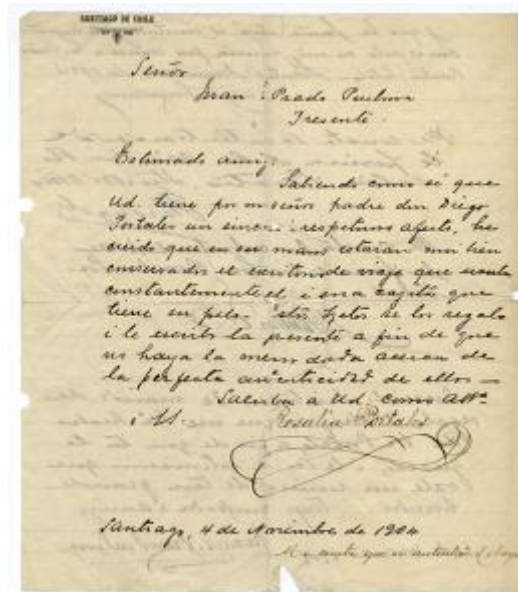 SANTIAGO DE CHILE
Señor
Juan Prado Puelma
Presente.
Estimado amigo
Sabiendo como sé que
Ud. tiene por mi señor padre don Diego
Portales un sincero i respetuoso afecto, he
creido que en sus manos estarian mui bien
conservados el escritorio de viaje que usaba
constantemente el i una cajita que
tiene su pelo. Estos objetos se los regalo
i le escribo la presente a fin de que
no haya la menor duda acerca de
la perfecta autenticidad de ellos —
Saluda a Ud. como aff.
i SS. Rosalia Portales
Santiago, 4 de Noviembre de 1904